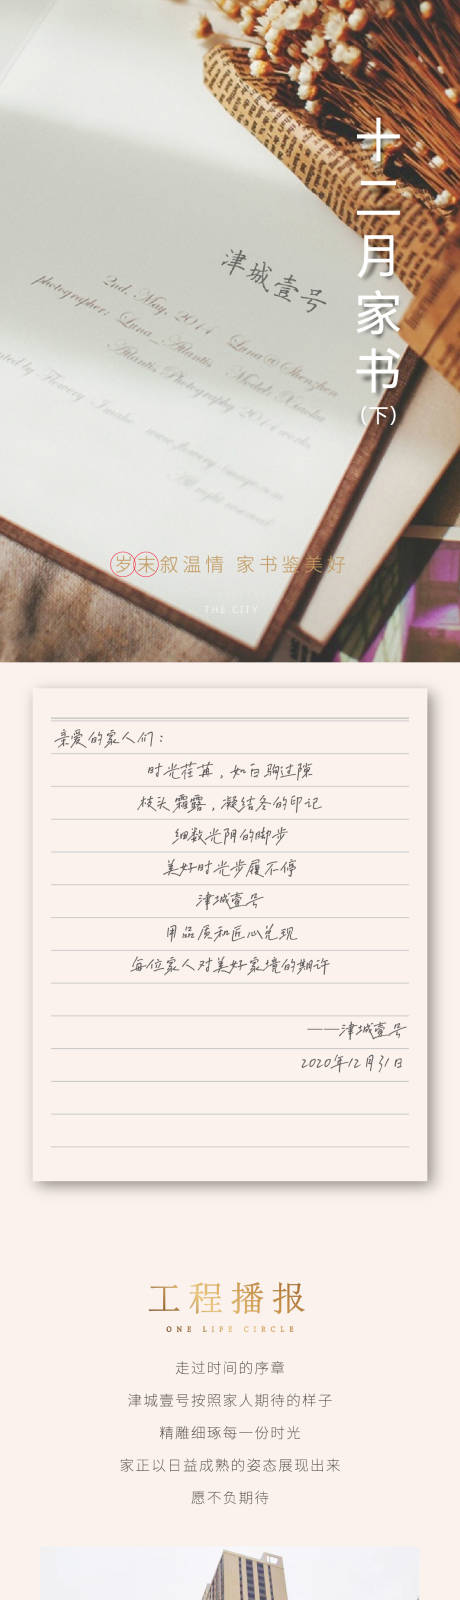 十二月家书
（下）
津城壹号
2nd. May. 2014 Luna@Shenzhen
photographer: Luna_Atlantis Model: Xiaolu
Atlantis Photography 2014 works.
All right reserved
岁末叙温情 家书鉴美好
THE CITY
亲爱的家人们：
时光荏苒，如白驹过隙
枝头霜露，凝结冬的印记
细数光阴的脚步
美好时光步履不停
津城壹号
用品质和匠心兑现
每位家人对美好家境的期许
——津城壹号
2020年12月31日
工程播报
ONE LIFE CIRCLE
走过时间的序章
津城壹号按照家人期待的样子
精雕细琢每一份时光
家正以日益成熟的姿态展现出来
愿不负期待